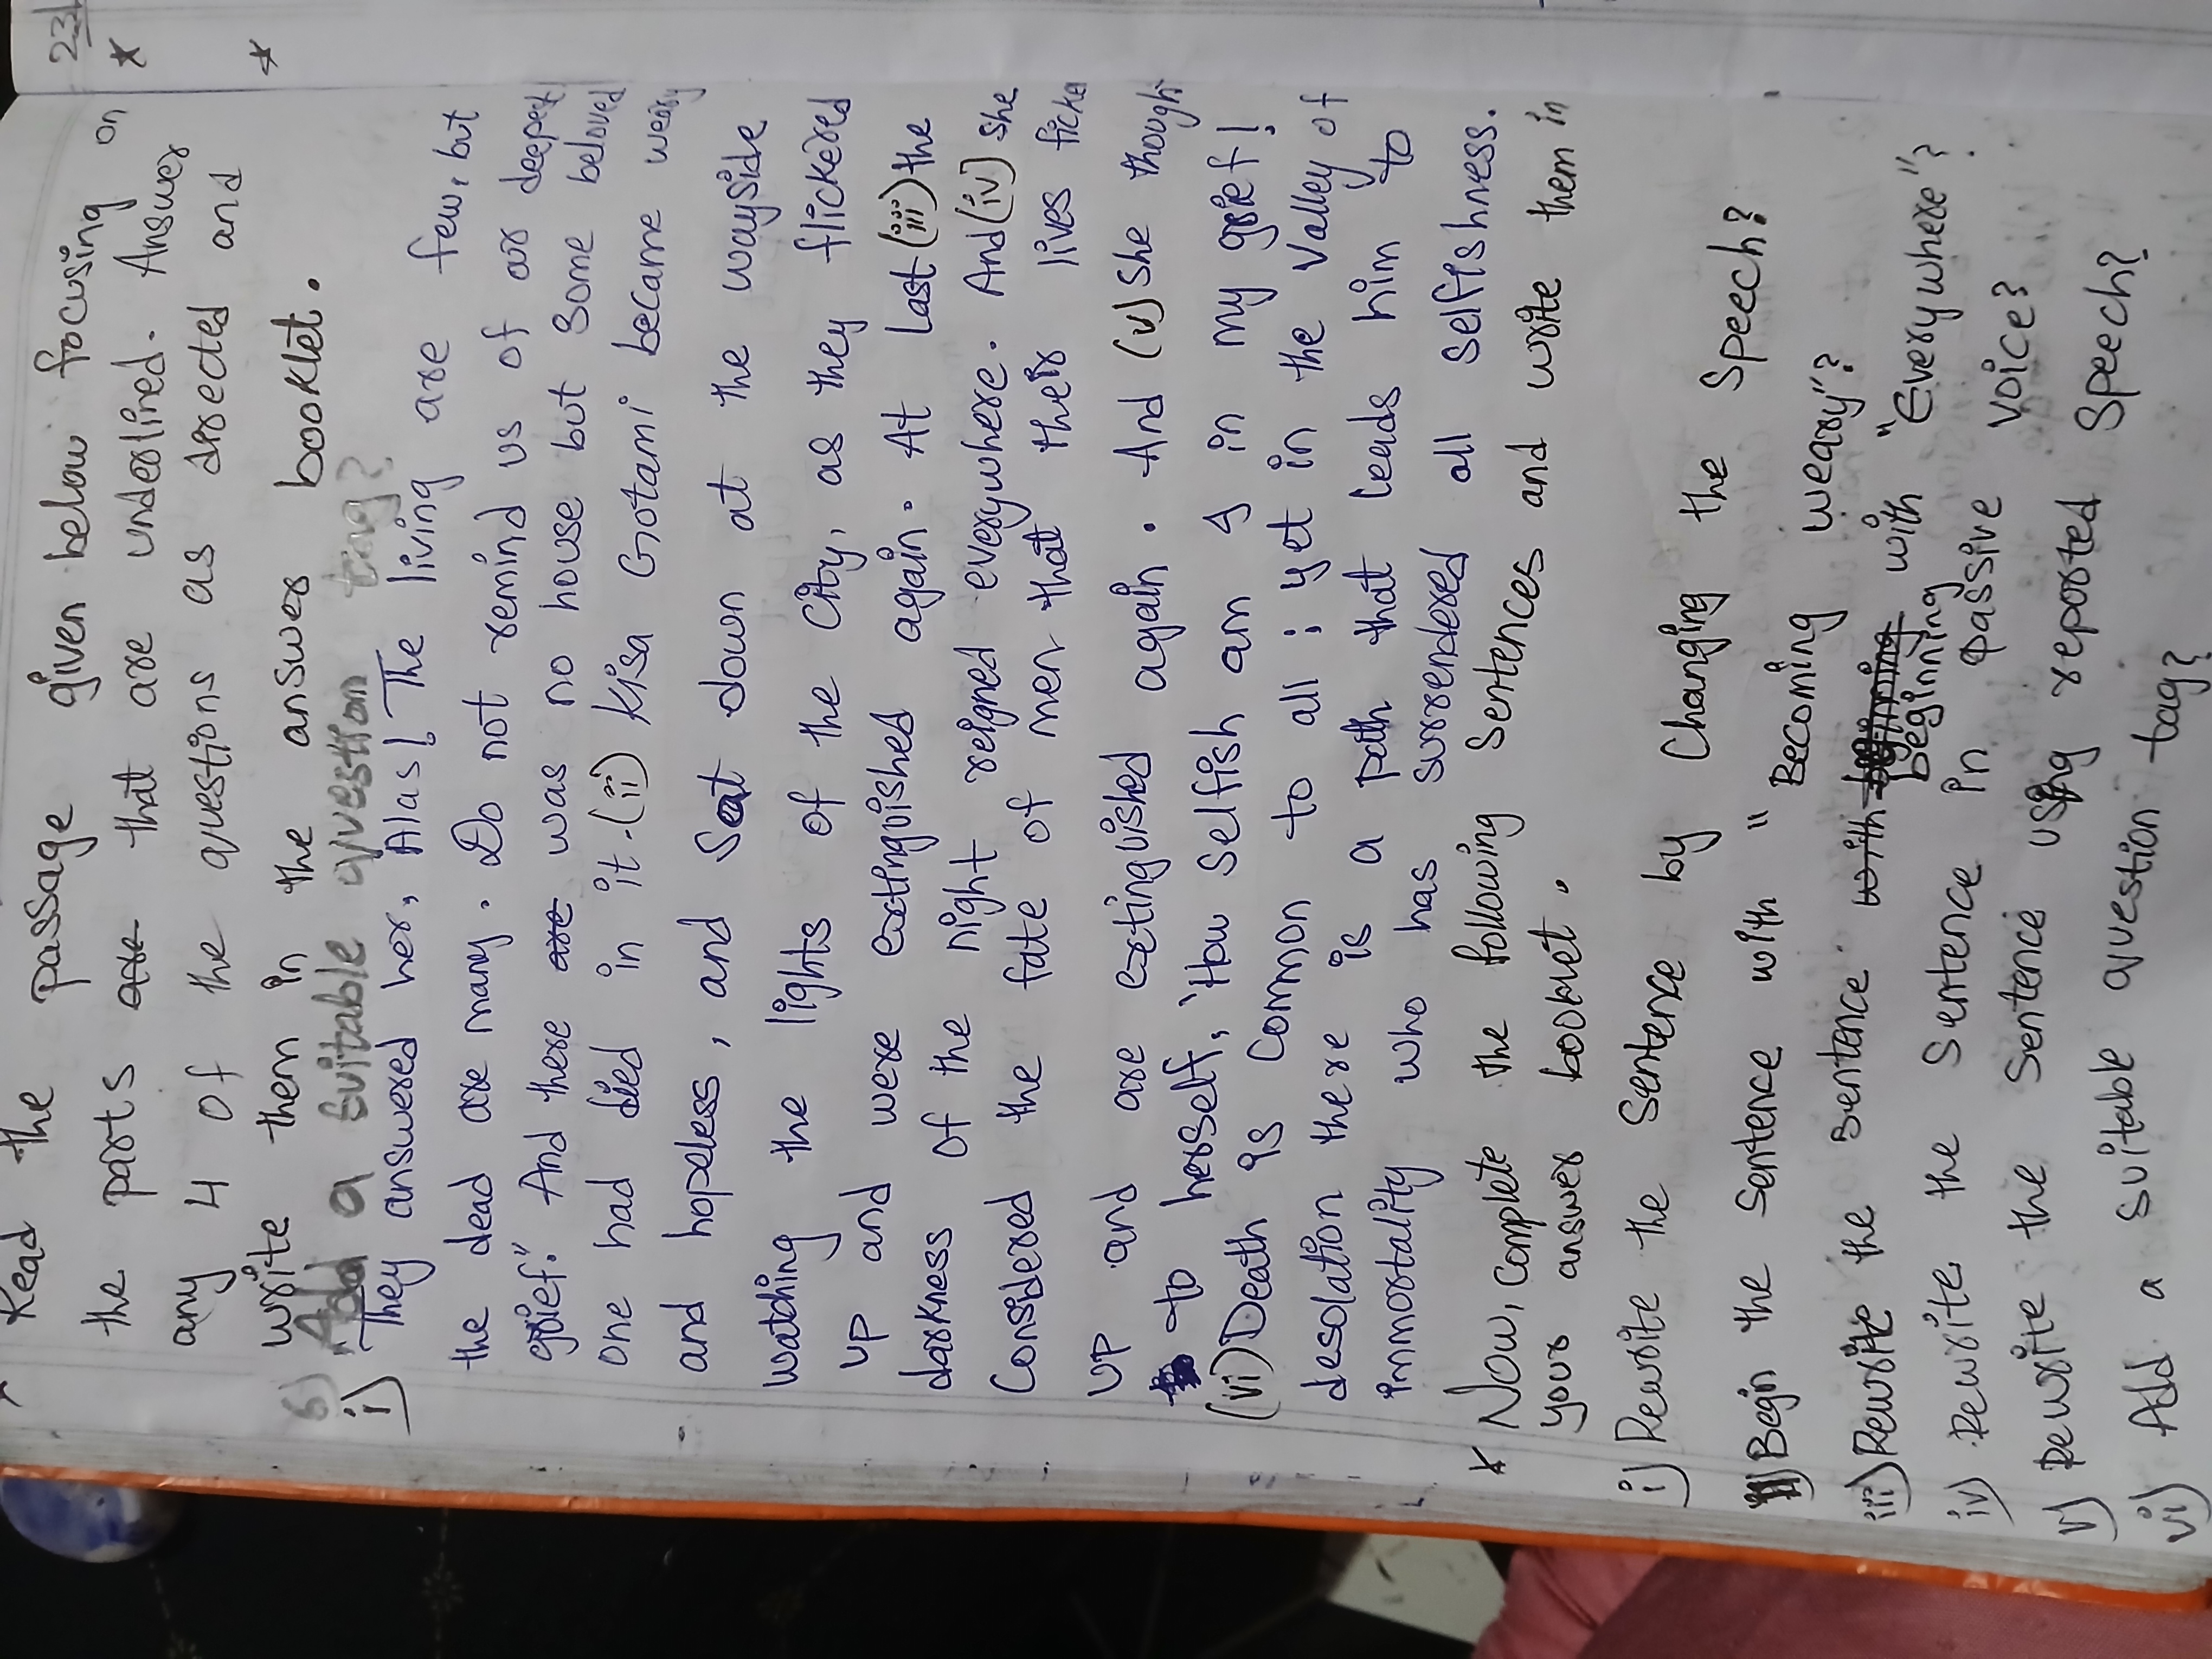 23
*
*
Read the passage given below focusing on
the parts are that are underlined. Answer
any 4 of the questions as directed and
write them in the answer booklet.
6) Add a suitable question tag?
i) They answered her, Alas! The living are few, but
the dead are many. Do not remind us of or deepest
grief." And there are was no house but some beloved
one had died in it. (ii) Kisa Gotami became weary
and hopeless, and Sat down at the wayside
watching the lights of the city, as they flickered
up and were extinguished again. At last (iii) the
darkness of the night reigned everywhere. And (iv) she
Considered the fate of men that their lives flicke
up and are extinguished again. And (v) she though
to herself, 'How selfish am I in my grief!
(vi) Death is common to all; yet in the valley of
desolation there is a path that leads him to
immortality who has surrendered all selfishness.
* Now, complete the following Sentences and write them in
your answer booklet.
i) Rewrite the Sentence by Changing the Speech?
ii) Begin the Sentence with "Becoming weary"?
iii) Rewrite the sentence. with beginning with "Everywhere"?
iv) Rewrite the Sentence in passive voice?
v) Rewrite the Sentence using reported Speech?
vi) Add a suitable question tag?